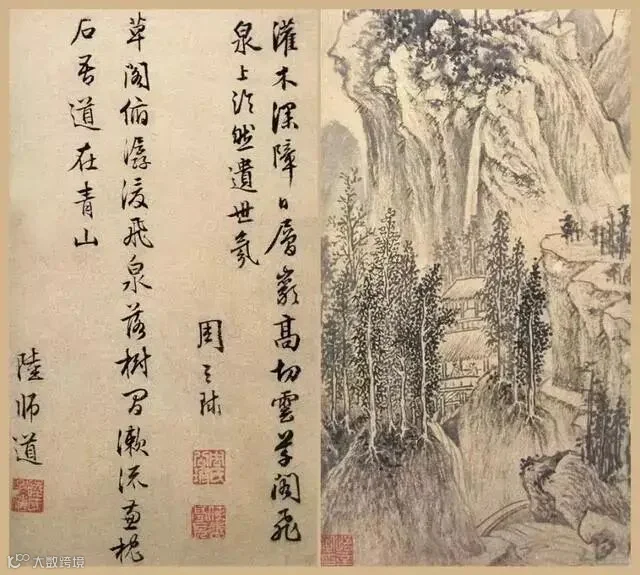 灌木深障日層巖高切雲草閣飛
泉上泠然遺世氛
周天球
草閣俯潺湲飛泉落樹間漱流兼枕
石吾道在青山
陸師道
大数跨境